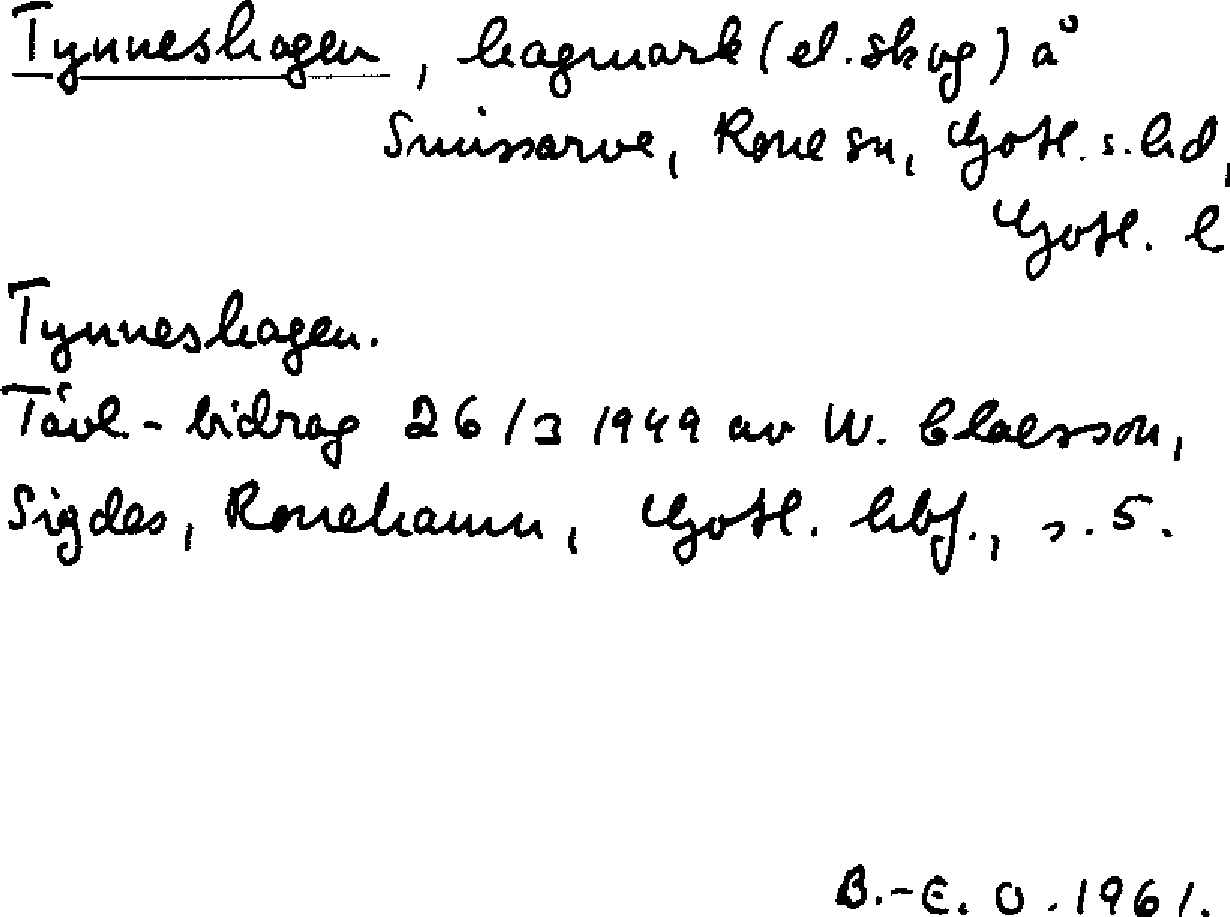 Tynneshagen, hagmark (el. skog) å
Smissarve, Rone sn, Gotl. s. hd,
Gotl. l
Tynneshagen.
Tävl.-bidrag 26/3 1949 av W. Claesson,
Sigdes, Ronehamn, Gotl. hbf., s. 5.
B.-E. O. 1961.